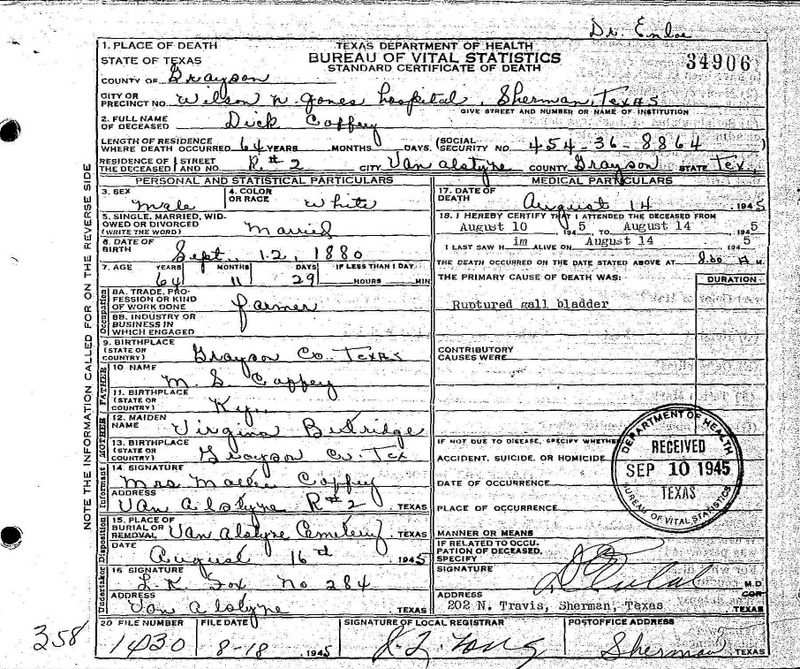 Dr. Enloe
1. PLACE OF DEATH
STATE OF TEXAS
COUNTY OF Grayson
TEXAS DEPARTMENT OF HEALTH
BUREAU OF VITAL STATISTICS
STANDARD CERTIFICATE OF DEATH
34906
CITY OR PRECINCT NO. Wilson N. Jones hospital, Sherman, Texas
GIVE STREET AND NUMBER OR NAME OF INSTITUTION
2. FULL NAME OF DECEASED Dick Coffey
LENGTH OF RESIDENCE WHERE DEATH OCCURRED 64 YEARS MONTHS DAYS. (SOCIAL SECURITY NO. 454-36-8864)
RESIDENCE OF THE DECEASED STREET AND NO. R#2 CITY Van Alstyne COUNTY Grayson STATE Tex.
PERSONAL AND STATISTICAL PARTICULARS
3. SEX Male
4. COLOR OR RACE White
5. SINGLE, MARRIED, WIDOWED OR DIVORCED (WRITE THE WORD)
6. DATE OF BIRTH Sept. 12, 1880
7. AGE YEARS MONTHS DAYS IF LESS THAN 1 DAY
64 11 29 HOURS MIN
Occupation
8A. TRADE, PROFESSION OR KIND OF WORK DONE farmer
8B. INDUSTRY OR BUSINESS IN WHICH ENGAGED
9. BIRTHPLACE (STATE OR COUNTRY) Grayson Co. Texas
FATHER
10 NAME M. S. Coffey
11. BIRTHPLACE (STATE OR COUNTRY) Ky.
MOTHER
12. MAIDEN NAME Virginia
13. BIRTHPLACE (STATE OR COUNTRY) Grayson Co. Tex
Informant
14. SIGNATURE Mrs Coffey
ADDRESS Van Alstyne R#2 TEXAS
Disposition
15. PLACE OF BURIAL OR REMOVAL Van Alstyne Cemetery TEXAS
DATE August 16th 1945
Undertaker
16 SIGNATURE L. K. Fox No 284
ADDRESS Van Alstyne TEXAS
MEDICAL PARTICULARS
17. DATE OF DEATH August 14 1945
18. I HEREBY CERTIFY THAT I ATTENDED THE DECEASED FROM
August 10 1945 TO August 14 1945
I LAST SAW H im ALIVE ON August 14 1945
THE DEATH OCCURRED ON THE DATE STATED ABOVE AT 8:00 A M.
THE PRIMARY CAUSE OF DEATH WAS: DURATION
Ruptured gall bladder
CONTRIBUTORY CAUSES WERE
IF NOT DUE TO DISEASE, SPECIFY WHETHER
ACCIDENT, SUICIDE, OR HOMICIDE
DATE OF OCCURRENCE
PLACE OF OCCURRENCE
MANNER OR MEANS
IF RELATED TO OCCUPATION OF DECEASED, SPECIFY
SIGNATURE
M.D.
ADDRESS
202 N. Travis, Sherman, Texas TEXAS
DEPARTMENT OF HEALTH
RECEIVED
SEP 10 1945
TEXAS
BUREAU OF VITAL STATISTICS
358
20 FILE NO. 1430
FILE DATE 8-18 1945
SIGNATURE OF LOCAL REGISTRAR
POSTOFFICE ADDRESS
Sherman TEXAS
NOTE THE INFORMATION CALLED FOR ON THE REVERSE SIDE